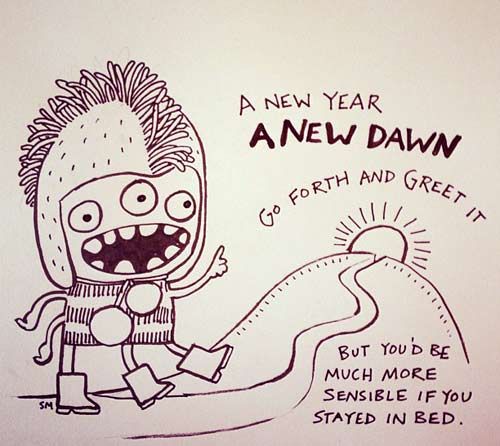 A NEW YEAR
A NEW DAWN
GO FORTH AND GREET IT
BUT YOU'D BE
MUCH MORE
SENSIBLE IF YOU
STAYED IN BED.
SM